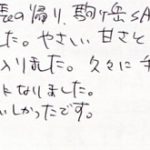 長の帰り、駒ヶ岳SA
した。やさしい甘さと
入りました。久々に
になりました。
いしかったです。